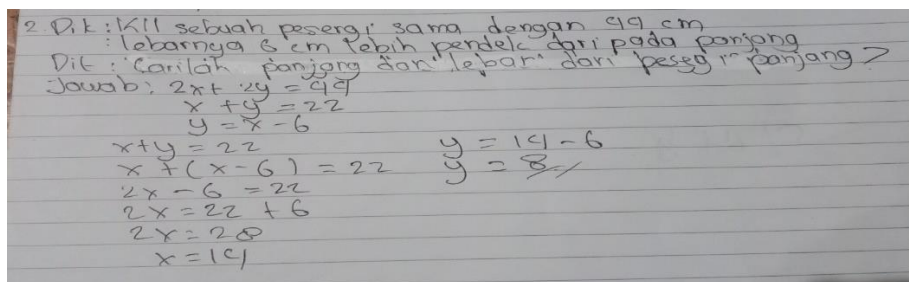 2. Dik : Kll sebuah pesergi sama dengan 44 cm
: lebarnya 6 cm lebih pendek dari pada panjang
Dit : Carilah panjang dan lebar dari pesegi panjang ?
Jawab : 2x + 2y = 44
x + y = 22
y = x - 6
x + y = 22
x + (x - 6) = 22
2x - 6 = 22
2x = 22 + 6
2x = 28
x = 14
y = 14 - 6
y = 8